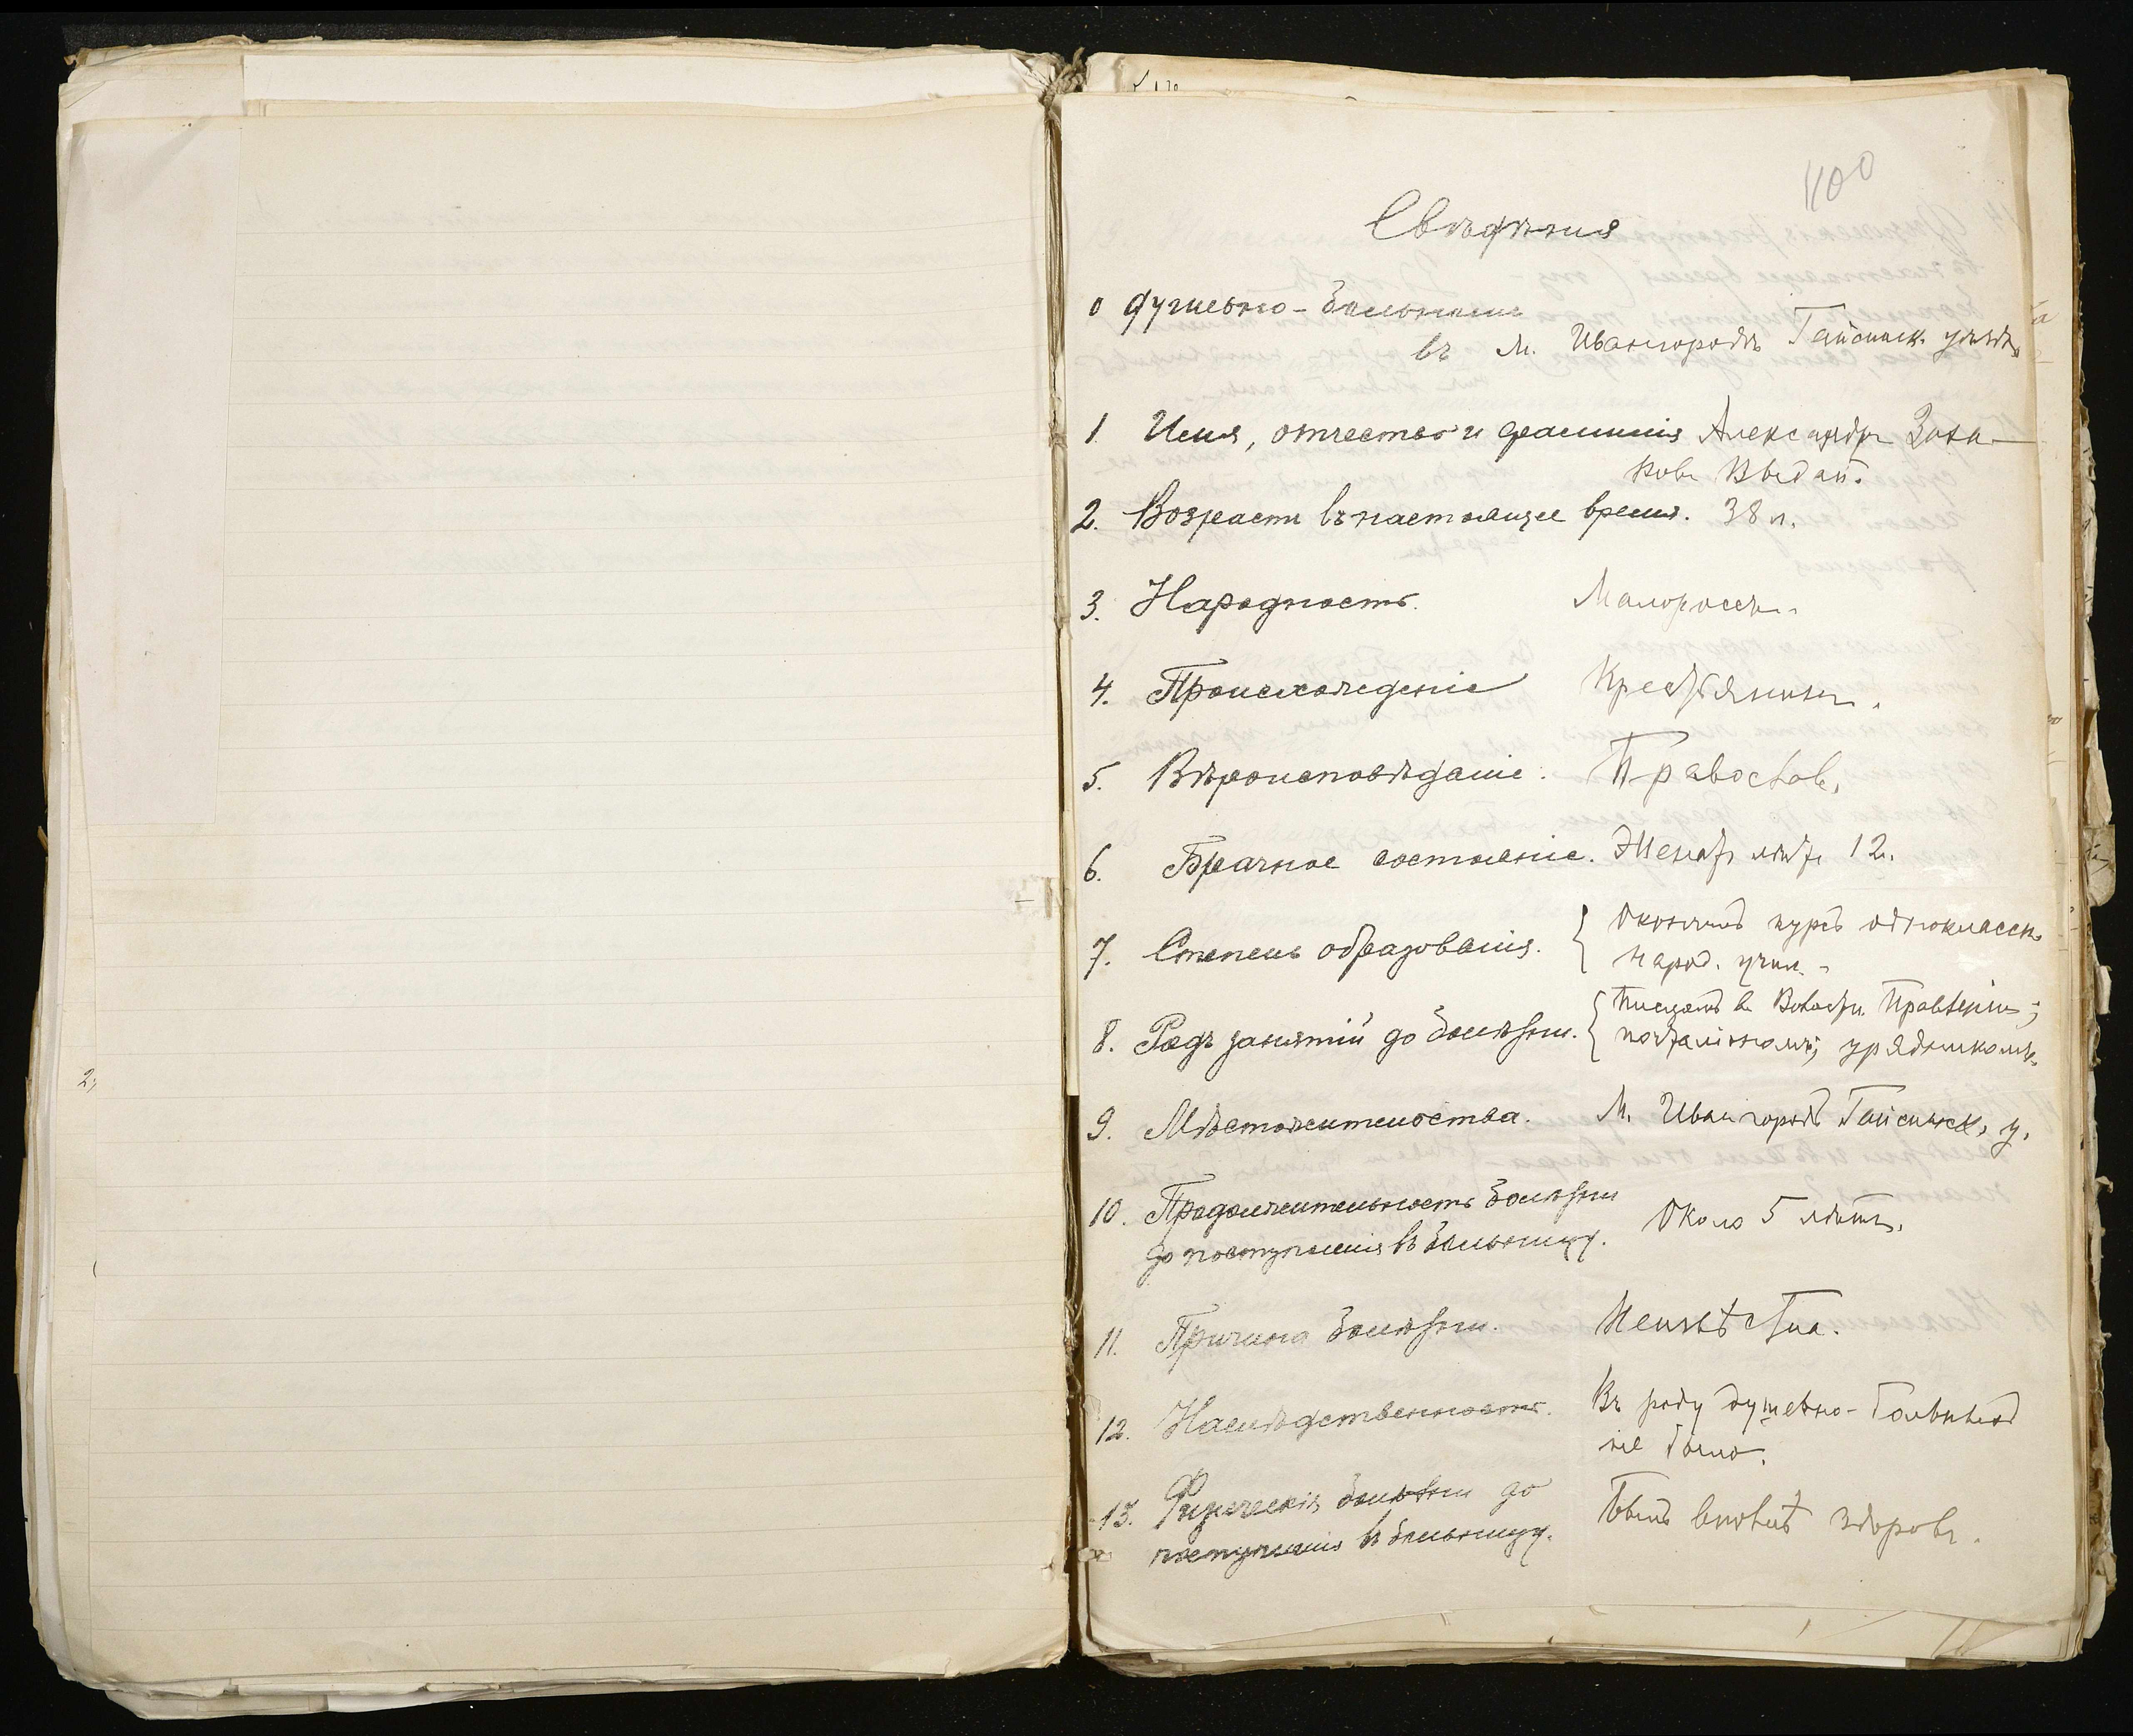 100
Свѣдѣнія
о душевно-больномъ
въ м. Ивангородѣ Гайсинск. уѣзда
1. Имя, отчество и фамилія Александръ
2. Возрастъ въ настоящее время. 38 л.
3. Народность. Малороссъ.
4. Происхожденіе Крестьянинъ.
5. Вѣроисповѣданіе. Православ.
6. Брачное состояніе. Женатъ лѣтъ 12.
7. Степень образованія. Окончилъ курсъ одноклассн.
народ. учил.
8. Родъ занятій до болѣзни. Писцомъ въ Волостн. Правленіи;
почталіономъ; урядникомъ.
9. Мѣстожительства. М. Ивангородъ Гайсинск. у.
10. Продолжительность болѣзни
до поступленія въ больницу. Около 5 лѣтъ.
11. Причина болѣзни. Неизвѣстна.
12. Наслѣдственность. Въ роду душевно-больныхъ
не было.
13. Физическія болѣзни до
поступленія въ больницу. Былъ вполнѣ здоровъ.